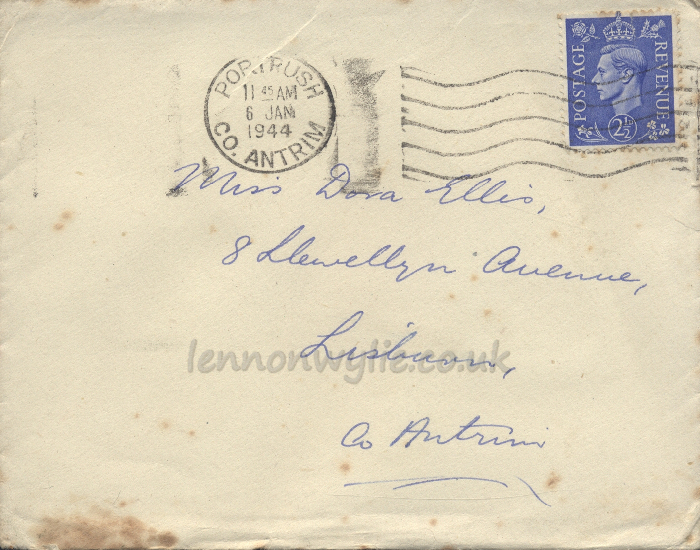 PORTRUSH
11 45 AM
6 JAN
1944
CO. ANTRIM
POSTAGE
REVENUE
2½D
Miss Dora Ellis,
8 Llewellyn Avenue,
Lisburn,
Co Antrim
lennonwylie.co.uk